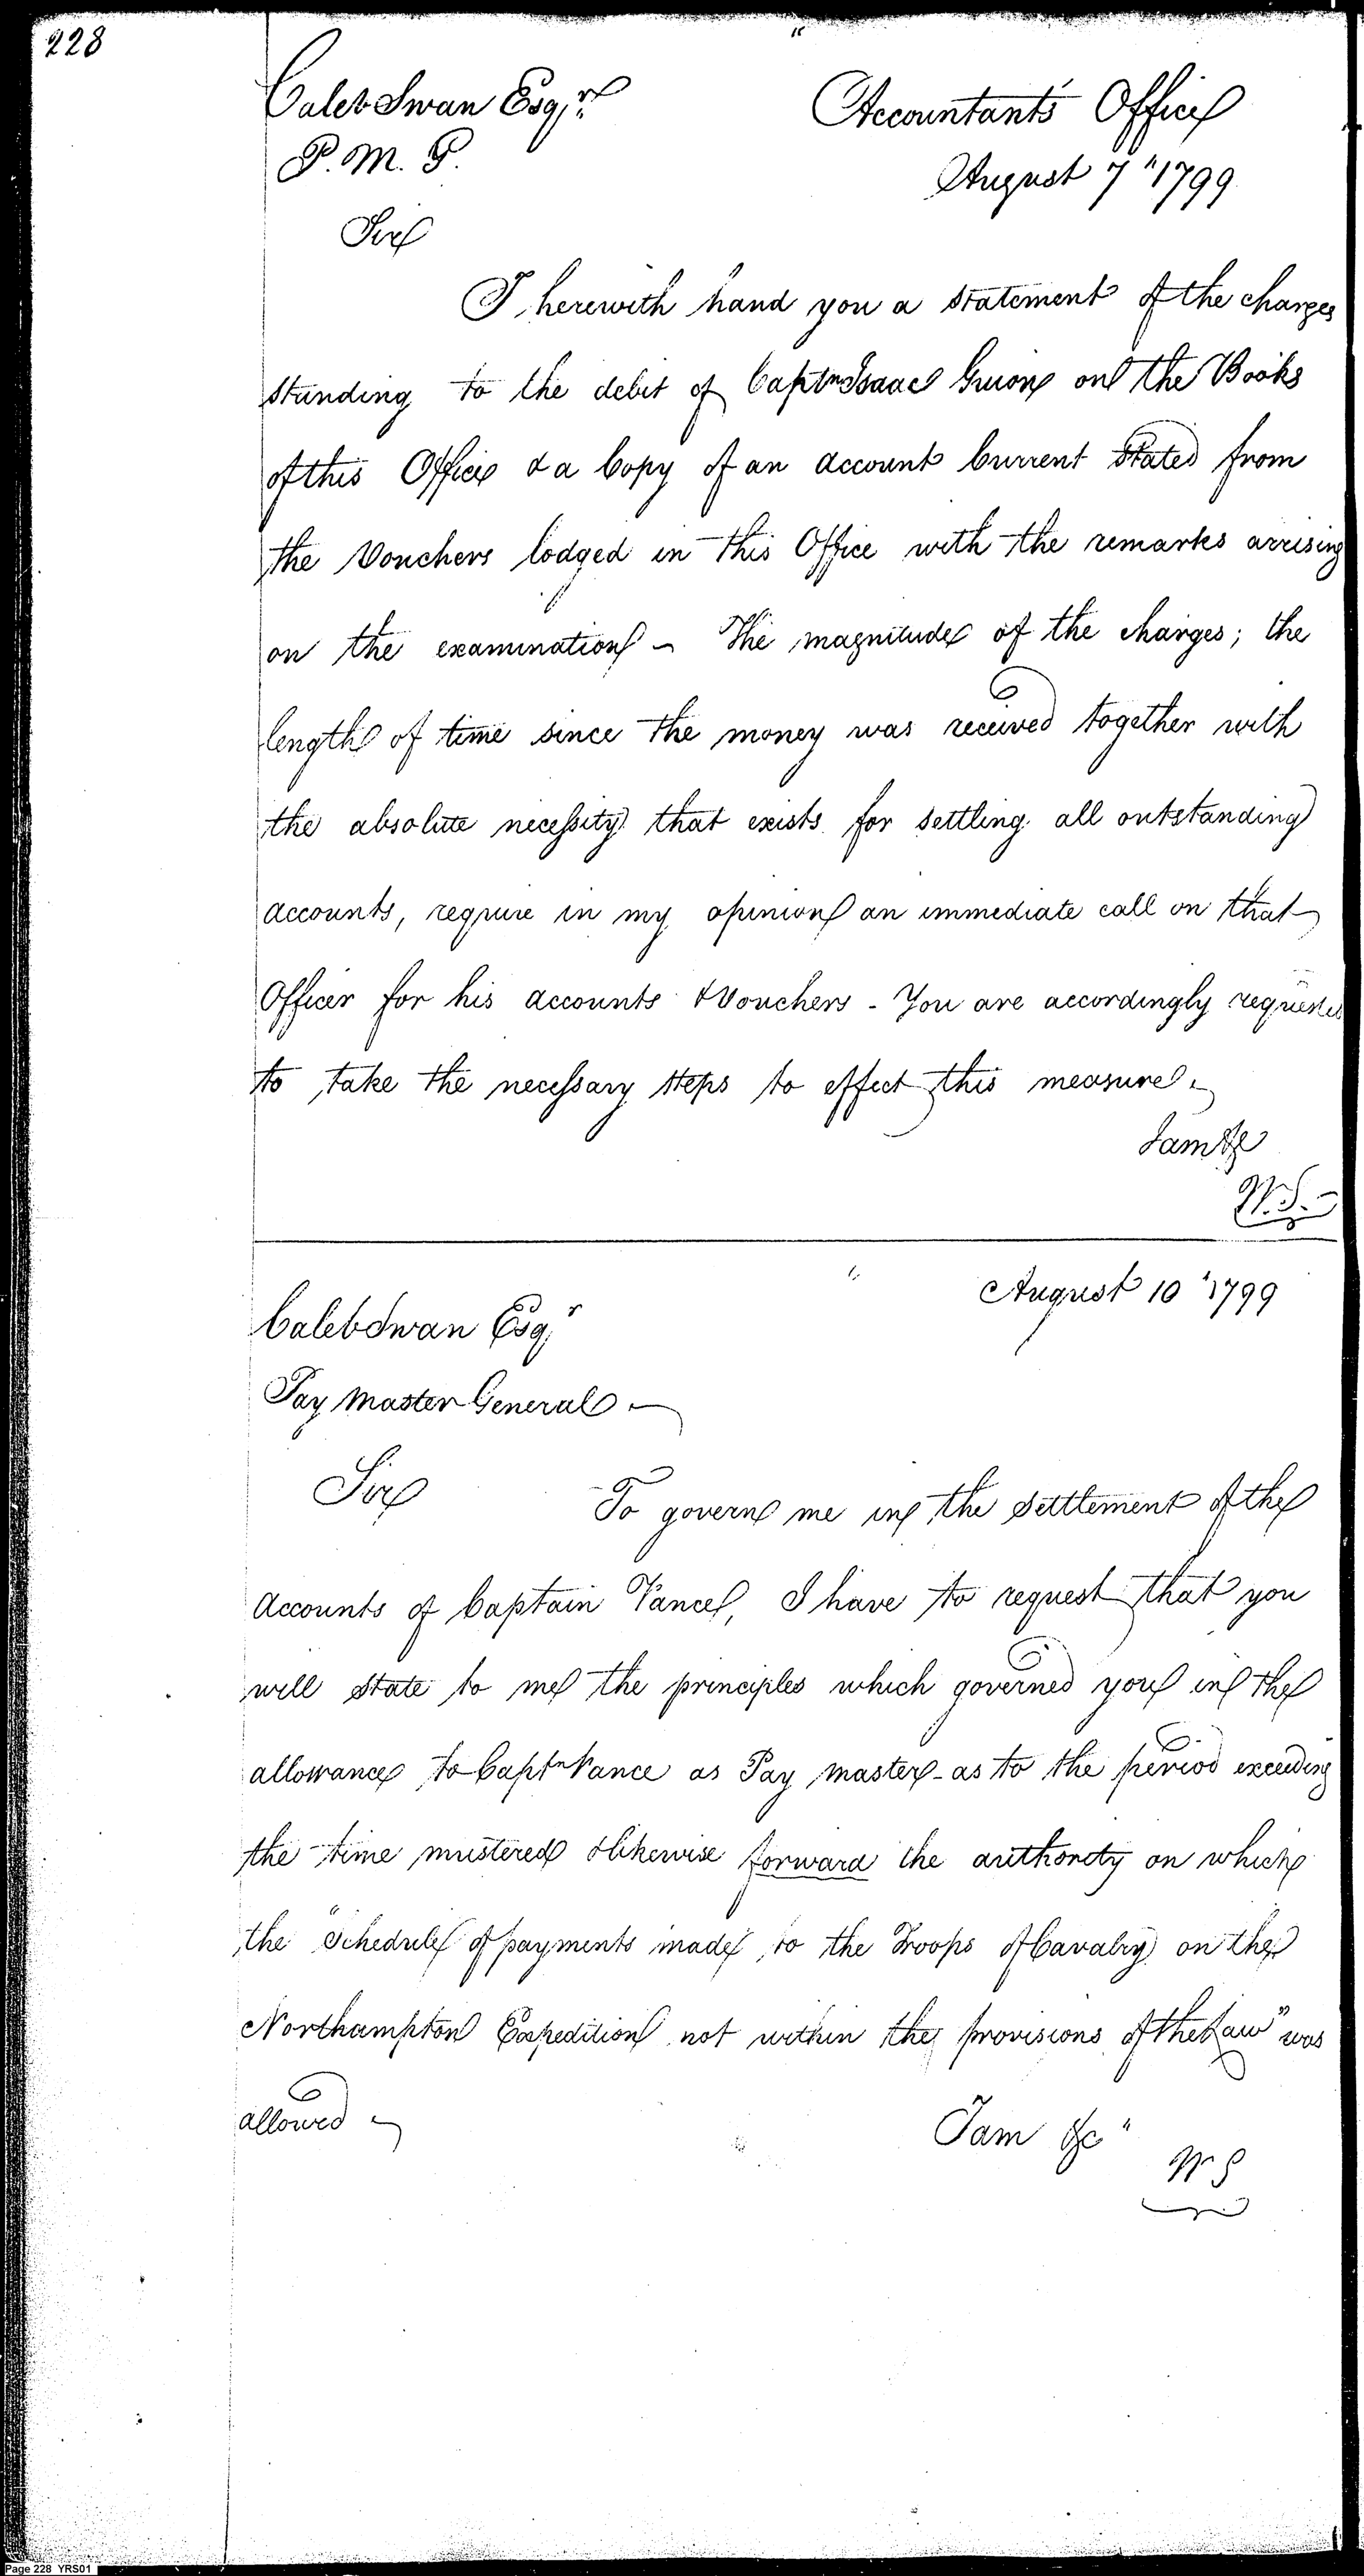 228
Caleb Swan Esqr.
P. M. G.
Accountants Office
August 7" 1799
Sir
I herewith hand you a statement of the charges
standing to the debit of Captn Isaac Guion on the Books
of this Office & a Copy of an account Current Stated from
the Vouchers lodged in this Office with the remarks arrising
on the examination - The magnitude of the charges; the
length of time since the money was received together with
the absolute necessity that exists for settling all outstanding
accounts, require in my opinion an immediate call on that
Officer for his accounts & Vouchers - You are accordingly requested
to take the necessary steps to effect this measure -
I am &c
W. S. -
August 10 "1799
Caleb Swan Esqr
Pay Master General -
Sir
To govern me in the settlement of the
accounts of Captain Vance, I have to request that you
will state to me the principles which governed you in the
allowance to Captn Vance as Pay master - as to the period exceeding
the time mustered & likewise forward the authority on which
the "Schedule of payments made to the Troops of Cavalry on the
Northampton Expedition not within the provisions of the Law" was
allowed -
I am &c"
W S
Page 228 YRS01